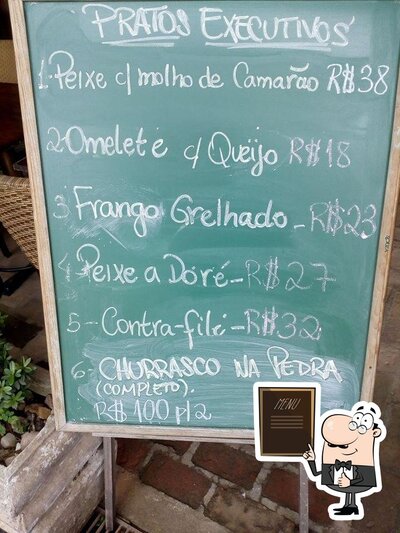 PRATOS EXECUTIVOS
1-Peixe c/molho de Camarão R$38
2-Omelete c/ Queijo R$18
3 Frango Grelhado - R$23
4-Peixe a Doré - R$27
5- Contra-filé - R$32
6- CHURRASCO NA PEDRA
(COMPLETO).
R$ 100 p/2
MENU